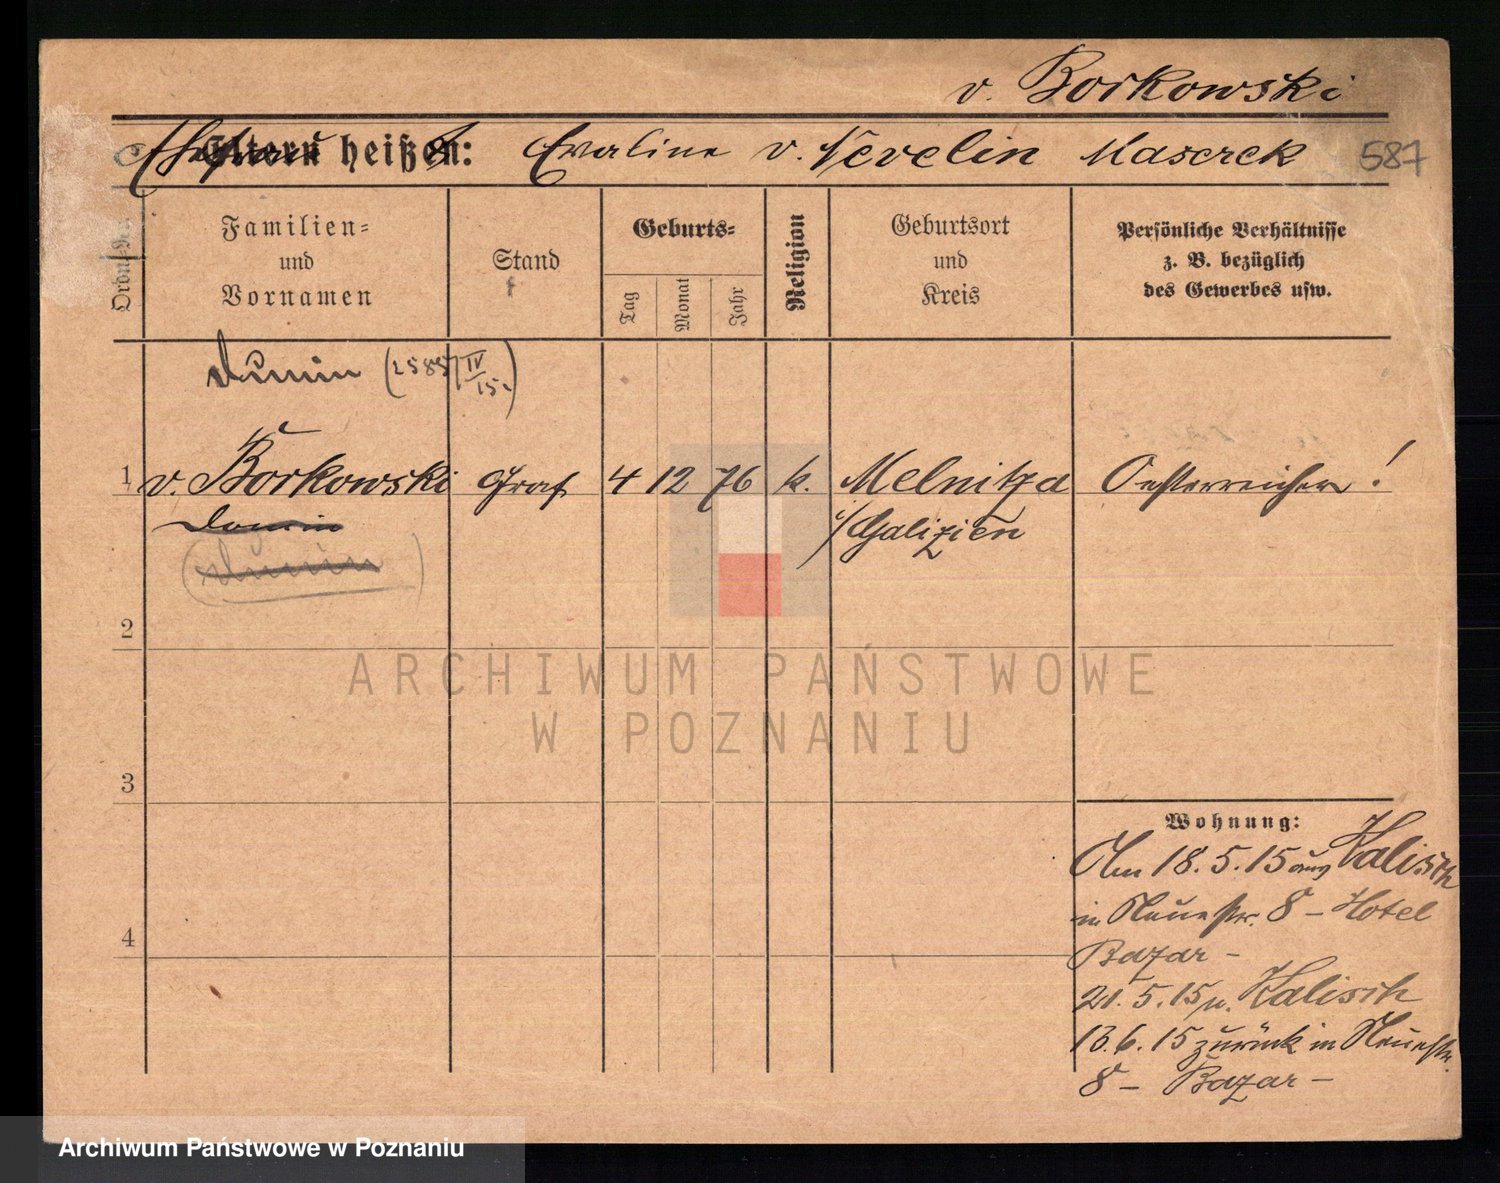 v. Borkowski
Ehefrau heißt: Eveline v. Nevelin Maserek 587
Ordn.-Nr.
Familien=
und
Vornamen
Stand
Geburts=
Tag
Monat
Jahr
Religion
Geburtsort
und
Kreis
Persönliche Verhältnisse
z. B. bezüglich
des Gewerbes usw.
Dunin (2585/IV 15.)
1 v. Borkowski Graf 4 12 76 k. Melnitza Oesterreicher!
i/Galizien
Dunin
(Dunin)
2
3
4
Wohnung:
Am 18.5.15 aus Kalisch
in Neuestr. 8 – Hotel
Bazar –
21.5.15 n. Kalisch
13.6.15 zurück in Neuestr.
8 – Bazar –
ARCHIWUM PAŃSTWOWE
W POZNANIU
Archiwum Państwowe w Poznaniu